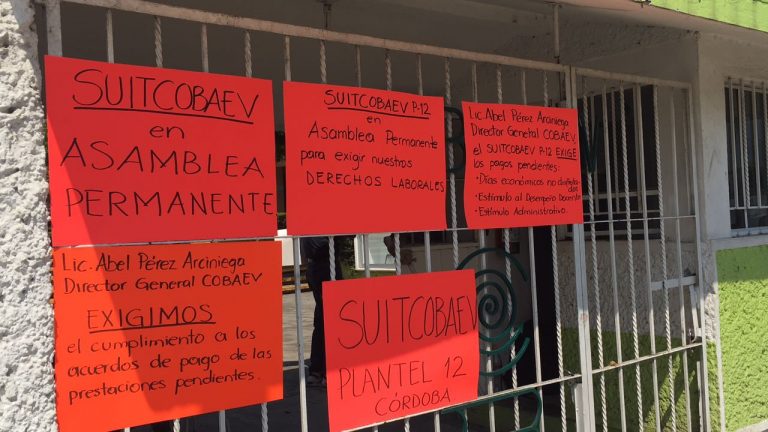 SUITCOBAEV
en
ASAMBLEA
PERMANENTE
SUITCOBAEV P-12
en
Asamblea Permanente
para exigir nuestros
DERECHOS LABORALES
Lic. Abel Pérez Arciniega
Director General COBAEV
el SUITCOBAEV P-12 EXIGE
los pagos pendientes:
• Días económicos no disfruta-
dos
• Estímulo al Desempeño Docente
• Estímulo Administrativo.
Lic. Abel Pérez Arciniega
Director General COBAEV
EXIGIMOS
el cumplimiento a los
acuerdos de pago de las
prestaciones pendientes.
SUITCOBAEV
PLANTEL 12
CÓRDOBA